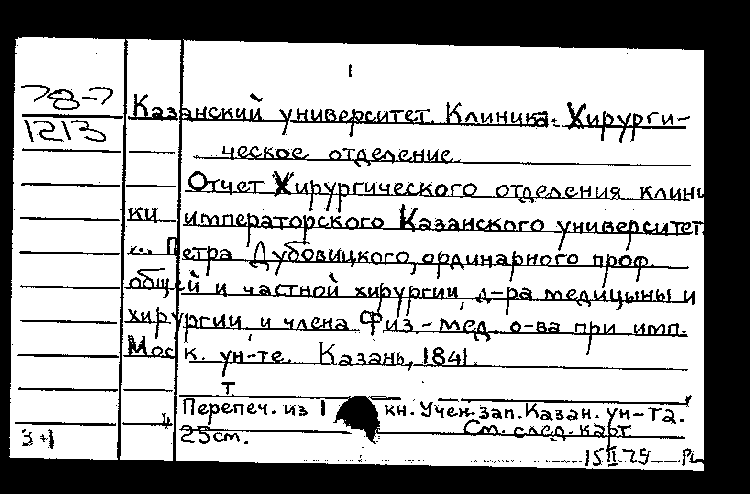 1
78-7
1213
Казанский университет. Клиника. Хирурги-
ческое отделение.
Отчет Хирургического отделения клини
ки императорского Казанского университет.
Петра Дубовицкого, ординарного проф.
общей и частной хирургии, д-ра медицины и
хирургии, и члена Физ.-мед. о-ва при имп.
Моск. ун-те. Казань, 1841.
т.
Перепеч. из 1 кн. Учен. зап. Казан. ун-та.
См. след. карт
25см.
3+1
15 II 75